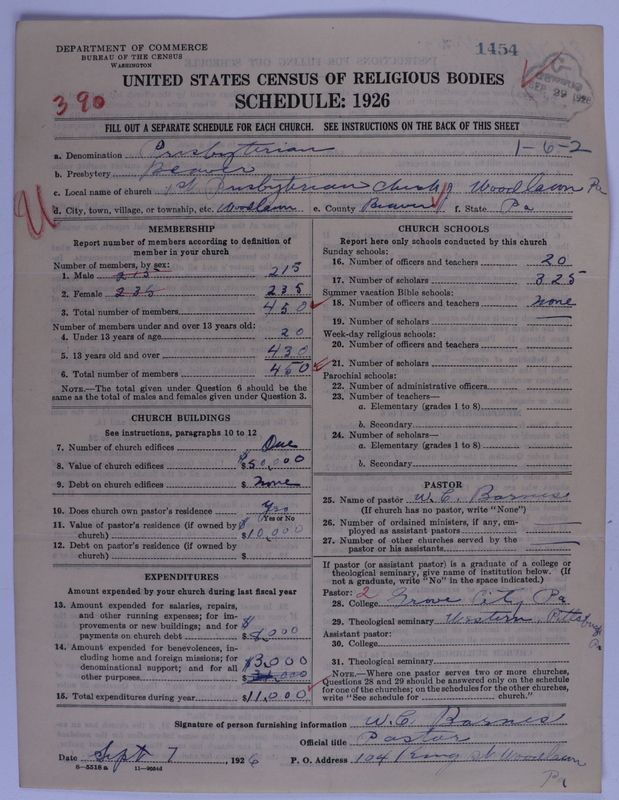 DEPARTMENT OF COMMERCE
BUREAU OF THE CENSUS
WASHINGTON
1454
UNITED STATES CENSUS OF RELIGIOUS BODIES
SCHEDULE: 1926
390
SEP 29 1926
FILL OUT A SEPARATE SCHEDULE FOR EACH CHURCH. SEE INSTRUCTIONS ON THE BACK OF THIS SHEET
a. Denomination Presbyterian 1-6-2
b. Presbytery Beaver
c. Local name of church 1st Presbyterian Church of Woodlawn Pa
d. City, town, village, or township, etc. Woodlawn e. County Beaver f. State Pa
MEMBERSHIP
Report number of members according to definition of
member in your church
Number of members, by sex:
1. Male 215 215
2. Female 235 235
3. Total number of members 450
Number of members under and over 13 years old:
4. Under 13 years of age 20
5. 13 years old and over 430
6. Total number of members 450
NOTE.—The total given under Question 6 should be the
same as the total of males and females given under Question 3.
CHURCH BUILDINGS
See instructions, paragraphs 10 to 12
7. Number of church edifices One
8. Value of church edifices $50,000
9. Debt on church edifices $ None
10. Does church own pastor's residence Yes
(Yes or No)
11. Value of pastor's residence (if owned by
church) $10,000
12. Debt on pastor's residence (if owned by
church) $
EXPENDITURES
Amount expended by your church during last fiscal year
13. Amount expended for salaries, repairs,
and other running expenses; for im-
provements or new buildings; and for
payments on church debt $8,000
14. Amount expended for benevolences, in-
cluding home and foreign missions; for
denominational support; and for all $3,000
other purposes $
15. Total expenditures during year $11,000
CHURCH SCHOOLS
Report here only schools conducted by this church
Sunday schools:
16. Number of officers and teachers 20
17. Number of scholars 325
Summer vacation Bible schools:
18. Number of officers and teachers None
19. Number of scholars
Week-day religious schools:
20. Number of officers and teachers
21. Number of scholars
Parochial schools:
22. Number of administrative officers
23. Number of teachers—
a. Elementary (grades 1 to 8)
b. Secondary
24. Number of scholars—
a. Elementary (grades 1 to 8)
b. Secondary
PASTOR
25. Name of pastor W. C. Barnes
(If church has no pastor, write "None")
26. Number of ordained ministers, if any, em-
ployed as assistant pastors
27. Number of other churches served by the
pastor or his assistants
If pastor (or assistant pastor) is a graduate of a college or
theological seminary, give name of institution below. (If
not a graduate, write "No" in the space indicated.)
Pastor: 2
28. College Grove City Pa
29. Theological seminary Western, Pittsburgh
Pa
Assistant pastor:
30. College
31. Theological seminary
NOTE.—Where one pastor serves two or more churches,
Questions 28 and 29 should be answered only on the schedule
for one of the churches; on the schedules for the other churches,
write "See schedule for church."
Signature of person furnishing information W. C. Barnes
Official title Pastor
Date Sept 7, 1926 P. O. Address 104 King St Woodlawn
Pa
8—5518a 11—9054d